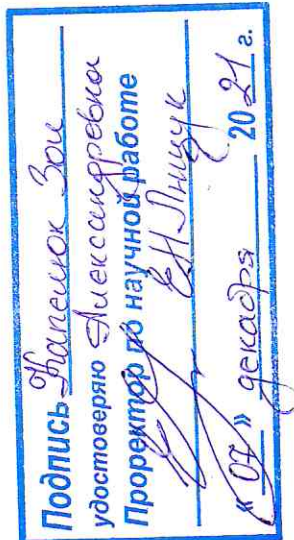 Подпись Капелюк Зои
удостоверяю Александровны
Проректор по научной работе
Е.Н. Пищук
« 07 » декабря 2021 г.